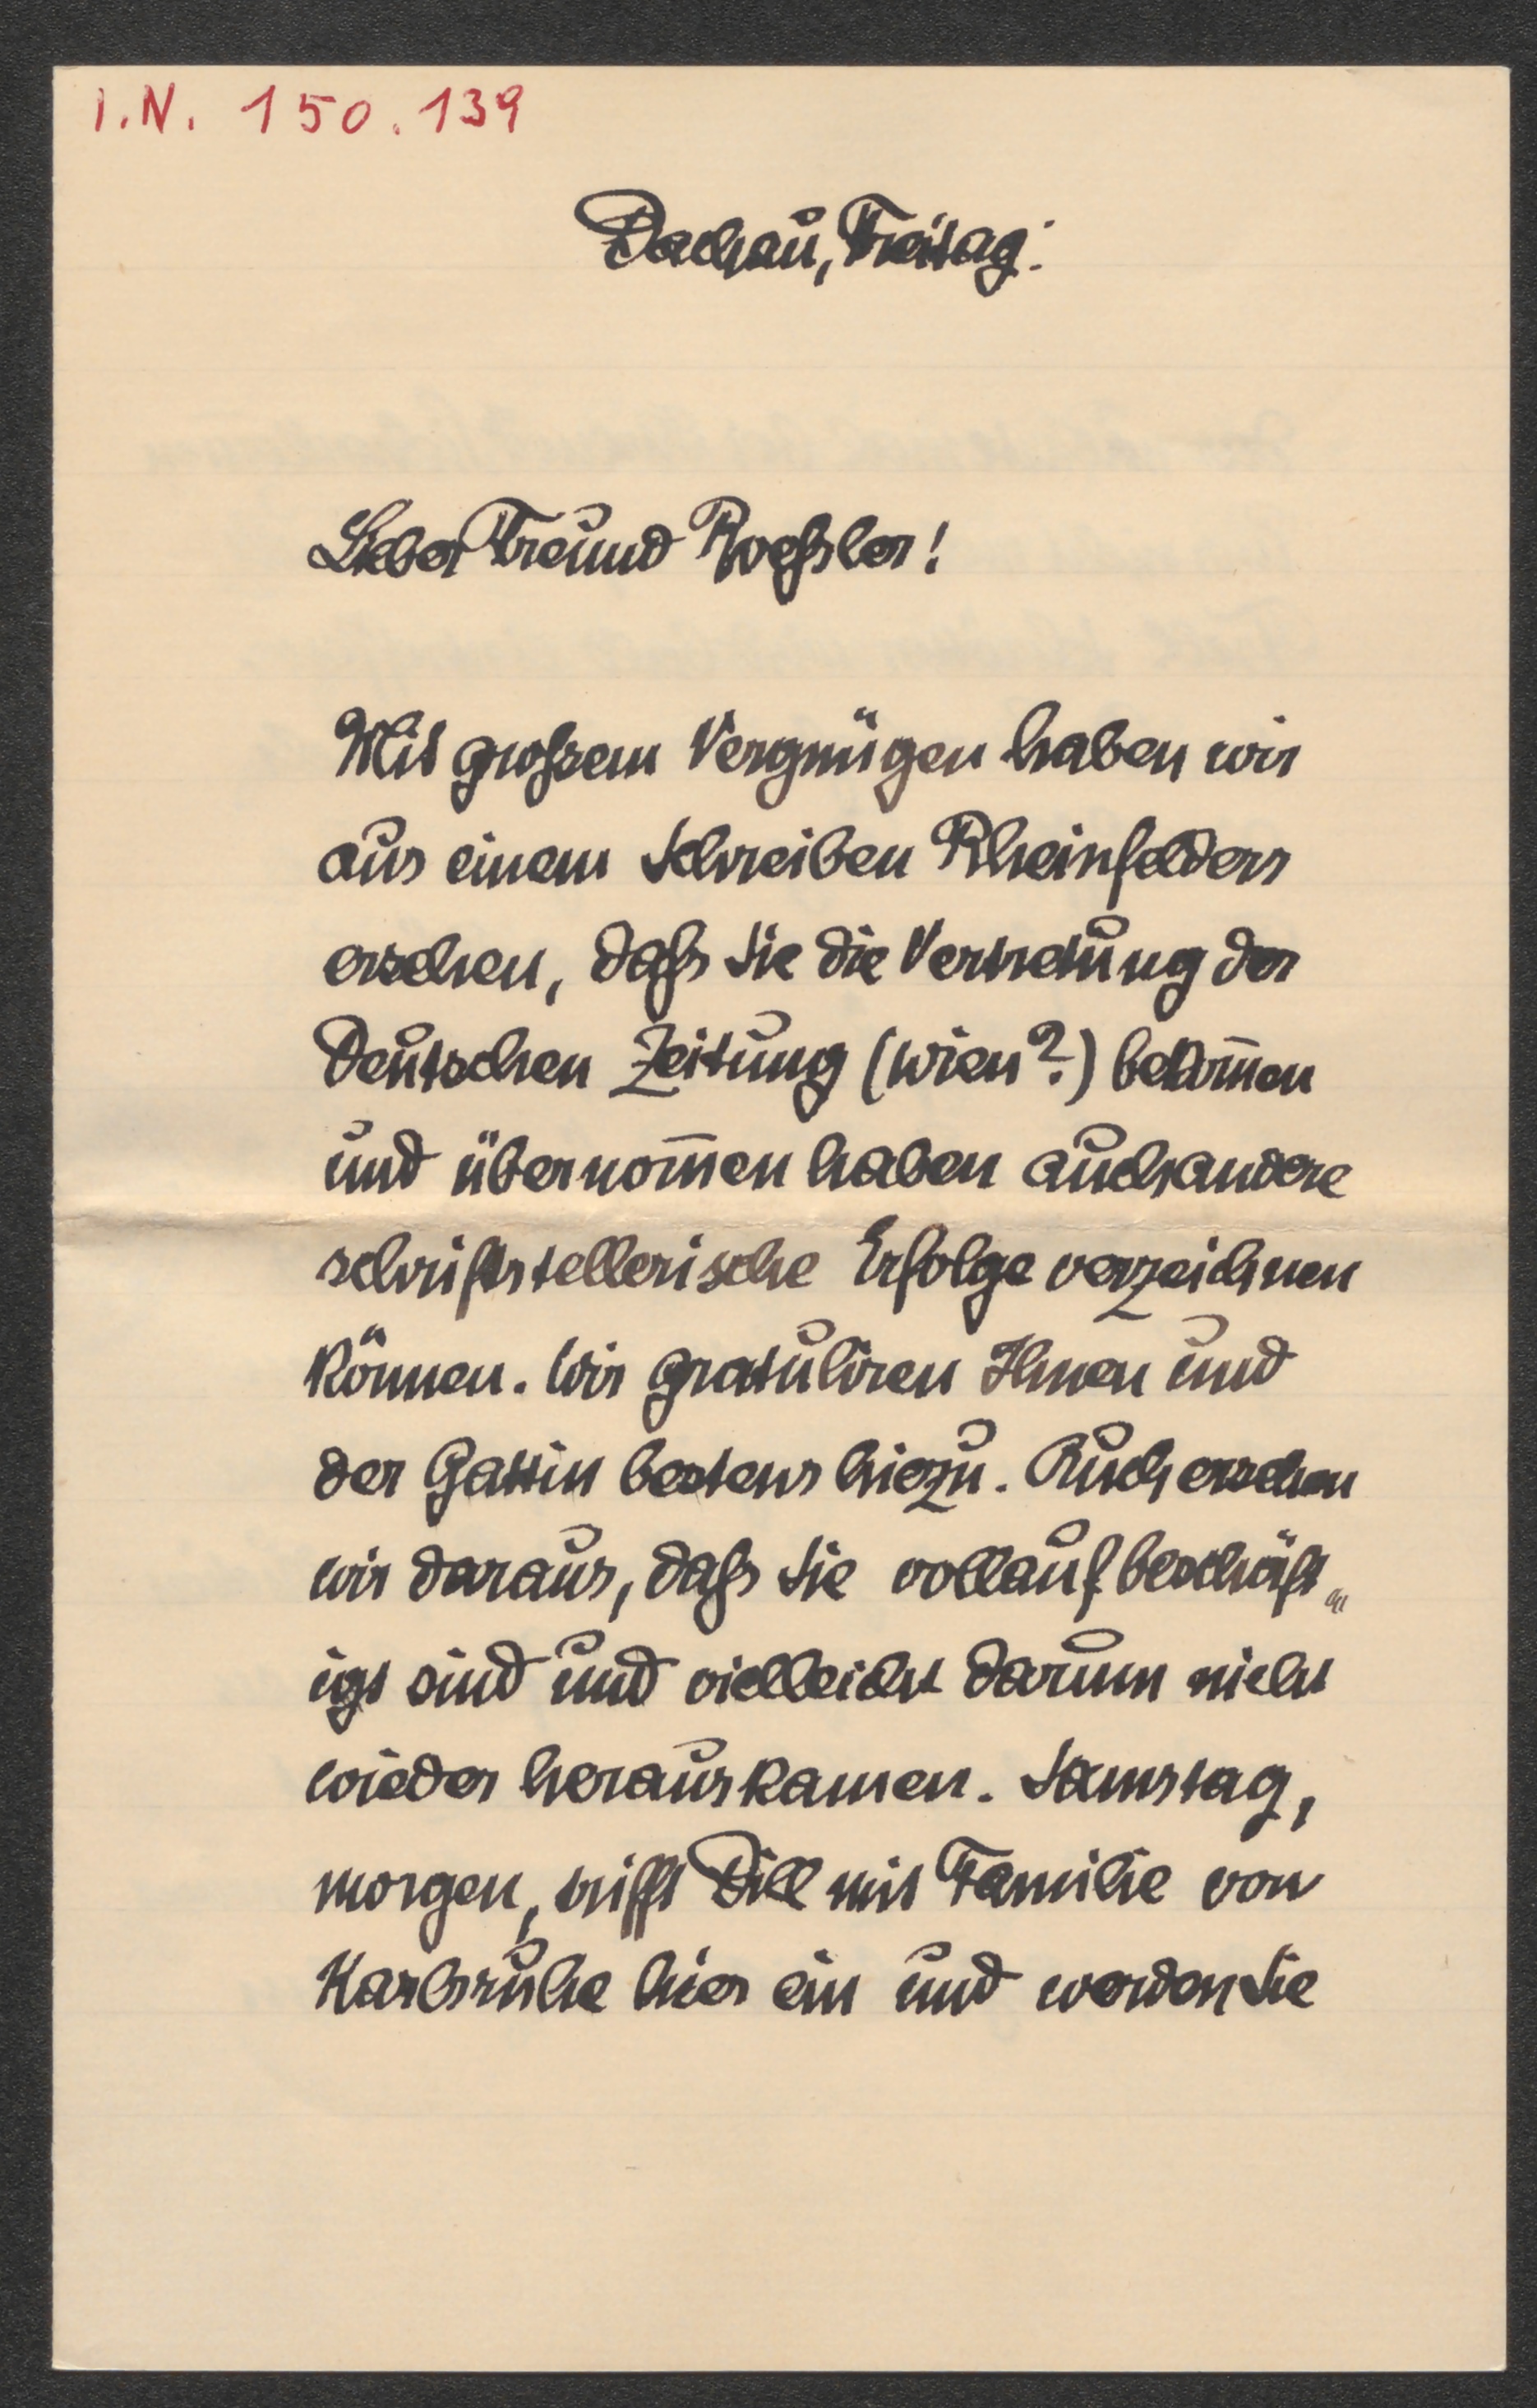 I.N. 150.139
Dachau, Freitag.
Lieber Freund Roeßler!
Mit großem Vergnügen haben wir
aus einem Schreiben Rheinfelders
ersehen, daß Sie die Vertretung der
Deutschen Zeitung (Wien?) bekom̅en
und übernom̅en haben auch andere
schriftstellerische Erfolge verzeichnen
können. Wir gratuliren Ihnen und
der Gattin bestens hiezu. Auch ersehen
wir daraus, daß Sie vollauf beschäft„
igt sind und vielleicht darum nicht
wieder herauskamen. Samstag,
morgen, trifft Dill mit Familie von
Karlsruhe hier ein und werden Sie